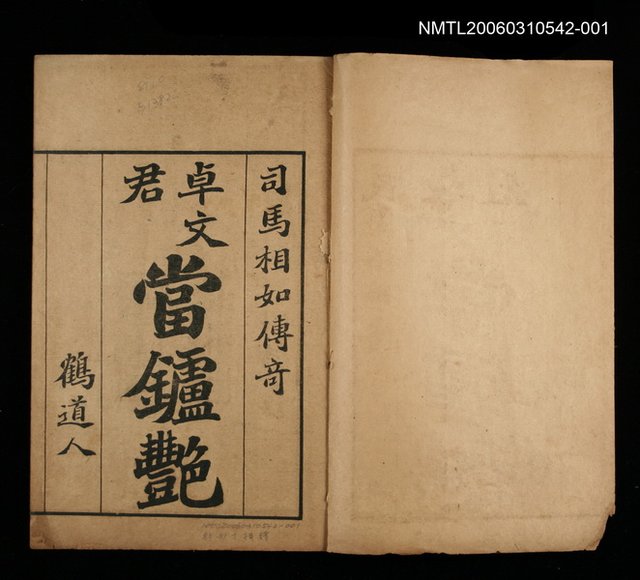 NMTL20060310542-001
司馬相如傳奇
卓文君
當鑪艷
鶴道人
NMTL20060310542-001